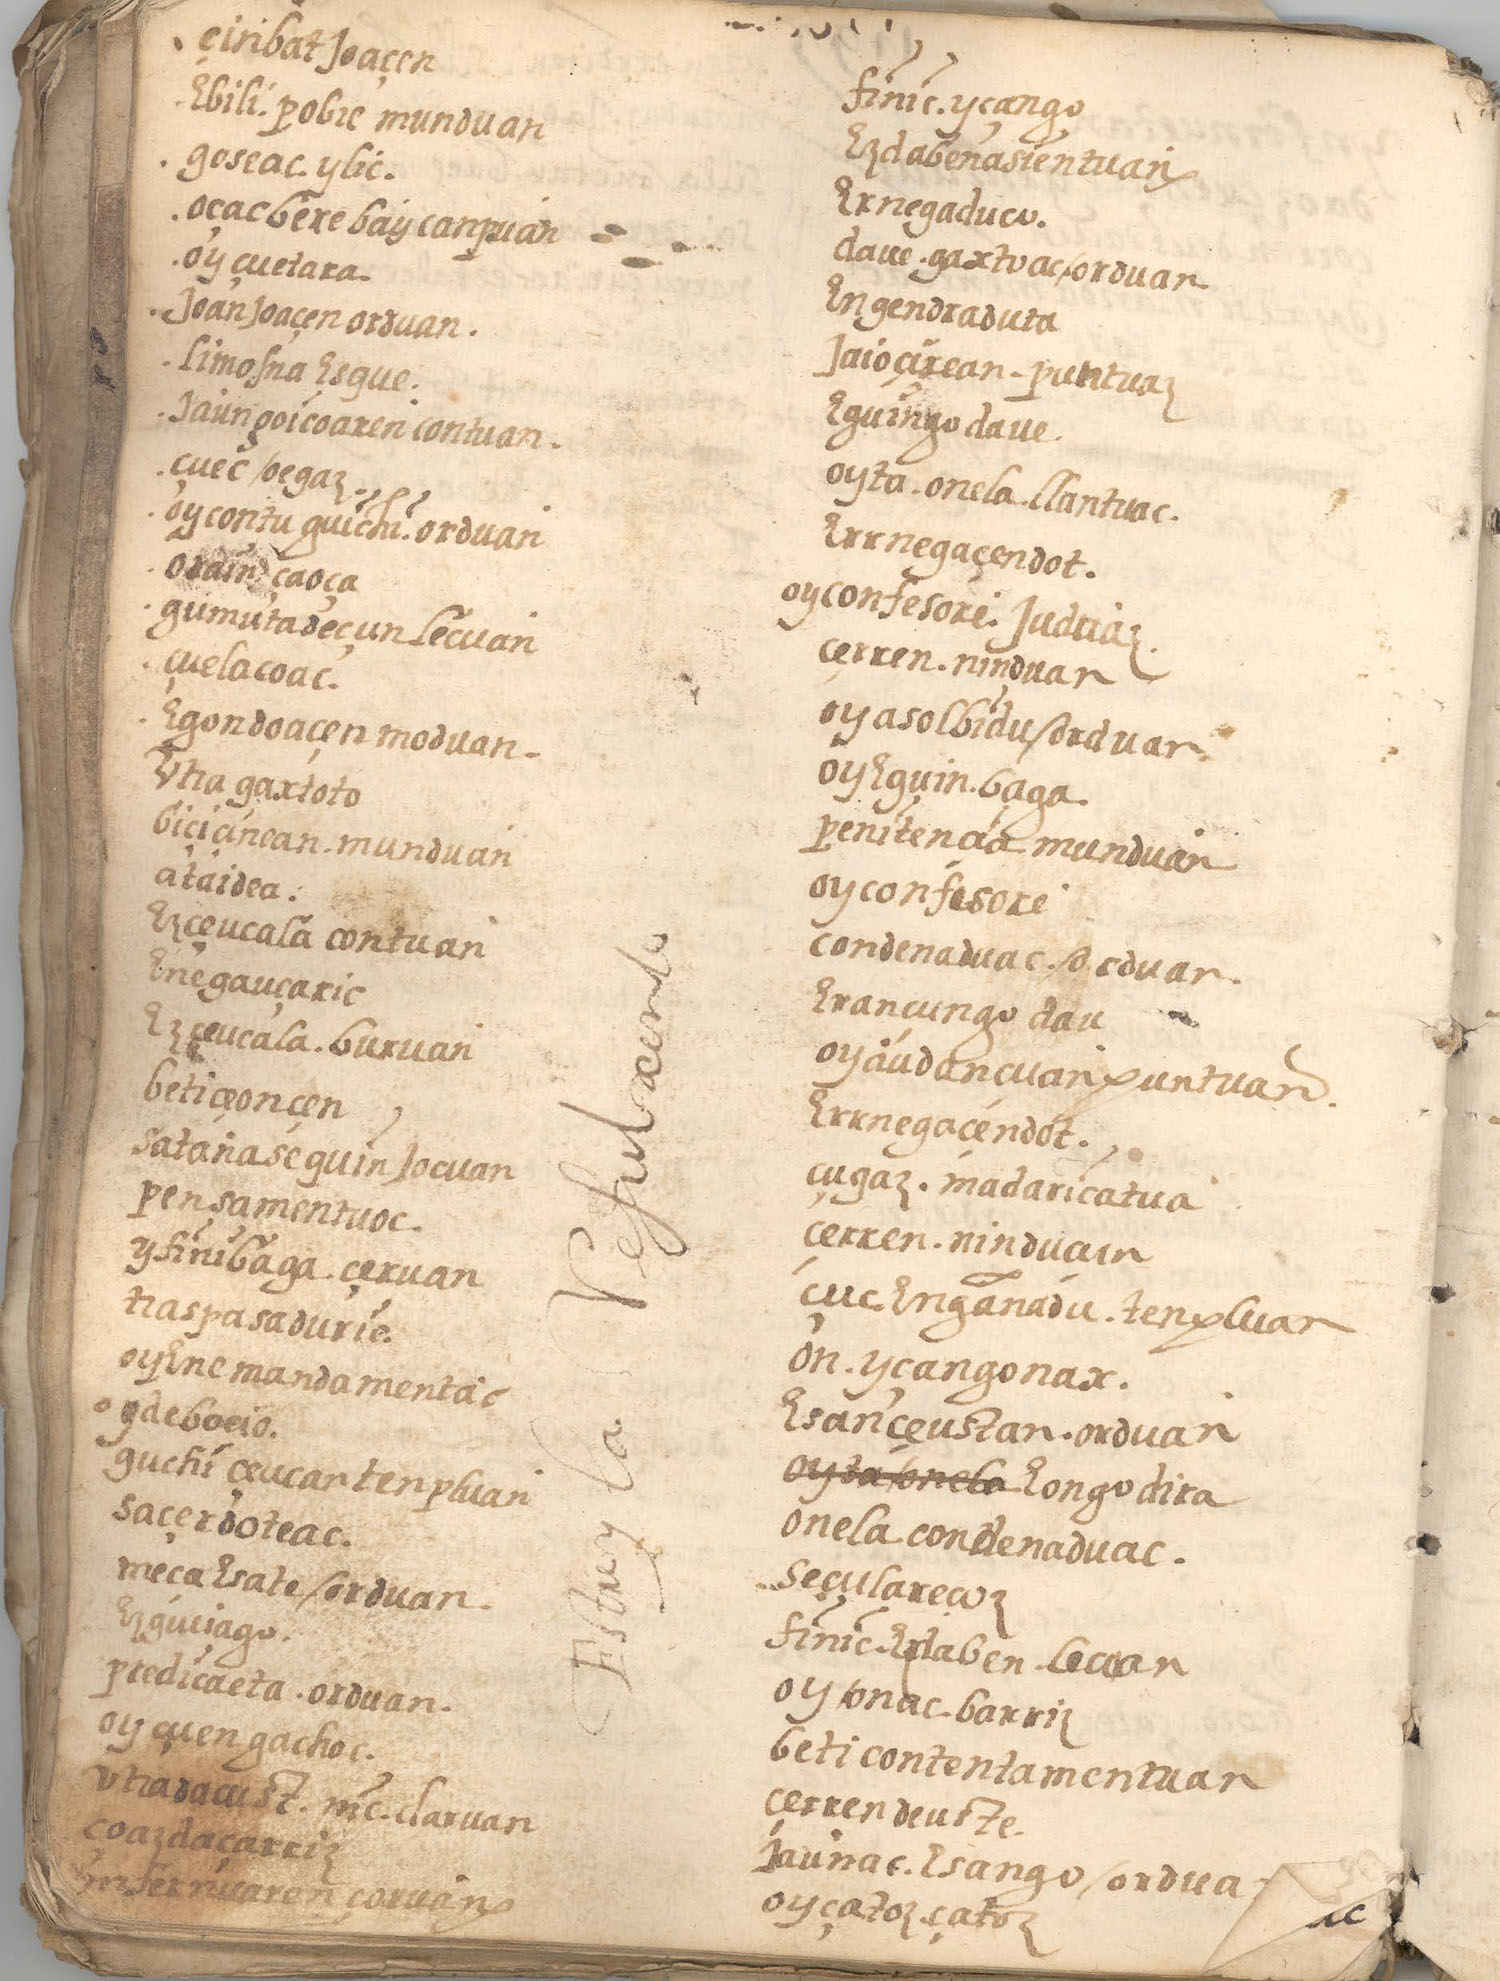 çinbat Joaçen
Ebili. pobre munduan
goseac. ylic.
oçac bere bay canpuan
oy çuetara.
Joan Joaçen orduan.
limosna Esque.
Jaungoicoaren contuan.
çuec /oegaz.
oy contu guichi. orduan
orain çaoça
gumuta deçun lecuan
çuelacoac.
Egondoaçen moduan.
Vtra gaxtoto
biçi anean. munduan
ataidea.
Ezçeucala contuan
Enegauçaric
Ezçeucala. buruan
beti çeonçen
satanas eguin Jocuan
pensamentuoc.
yfinibaga. çeruan
traspasaduric.
oy Ene mandamentac
oydeboeio.
guchi çeucan tenpluan
saçerdoteac.
meça Esate /orduan.
Ezguciago.
predicaeta. orduan.
oy çuen gachoc.
vtradacust. mc. claruan
coazdaçarriz
infernuaren çoruan
Estoy la Refrdacendo
finic. ycango
Ezdaben asientuan
Ernegaduco.
daue. gaxtoac /orduan
Engendraduta
Jaioçirean. puntuaz
Eguingo daue.
oyta. onela. llantuac.
Errnegaçendot.
oy confesore. Juduaz.
çerren. ninduan
oy asolbidu /orduan
oy Eguin. baga.
penitencia munduan
oy confesore
condenaduac. /orduan.
Erancungo dau
oy audancuan puntuan.
Errnegaçendot.
çugaz. madaricatua
çerren. ninduan
çuc Enganadu. tenpluan
on. ycangonax.
Esançeustan. orduan
oyta /onela Eongo dira
onela condenaduac.
seçulareçoz
finic. Ezdaben. lecuan
oy /onac. barriz
beti contentamentuan
çerren deuste.
Jaunac. Esango /ordua
oy çatoz. çatoz